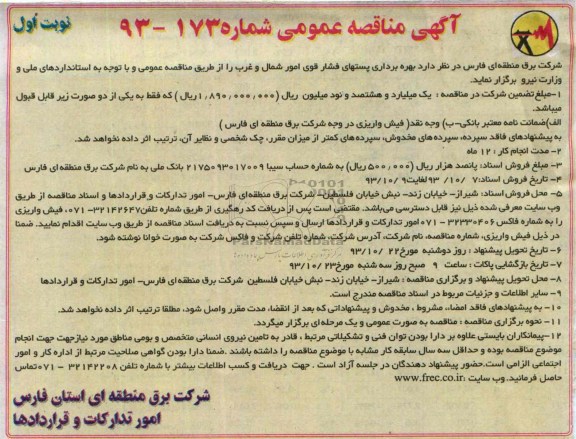 نوبت اول
آگهی مناقصه عمومی شماره ۱۷۳ -۹۳
شرکت برق منطقه‌ای فارس در نظر دارد بهره برداری پستهای فشار قوی امور شمال و غرب را از طریق مناقصه عمومی و با توجه به استانداردهای ملی و
وزارت نیرو برگزار نماید.
۱-مبلغ تضمین شرکت در مناقصه : یک میلیارد و هشتصد و نود میلیون ریال (۱,۸۹۰,۰۰۰,۰۰۰ریال ) که فقط به یکی از دو صورت زیر قابل قبول
میباشد.
الف)ضمانت نامه معتبر بانکی-ب) وجه نقد( فیش واریزی در وجه شرکت برق منطقه ای فارس )
به پیشنهادهای فاقد سپرده، سپرده های مخدوش، سپرده های کمتر از میزان مقرر، چک شخصی و نظایر آن، ترتیب اثر داده نخواهد شد.
۲- مدت انجام کار : ۱۲ ماه
۳- مبلغ فروش اسناد: پانصد هزار ریال (۵۰۰,۰۰۰ ریال) به شماره حساب سیبا ۲۱۷۵۰۹۳۰۱۷۰۰۹ بانک ملی به نام شرکت برق منطقه ای فارس
۴- تاریخ فروش اسناد: ۷ /۱۰/ ۹۳ لغایت ۹ /۹۳/۱۰
۵- محل فروش اسناد: شیراز- خیابان زند- نبش خیابان فلسطین - شرکت برق منطقه‌ای فارس- امور تدارکات و قراردادها و اسناد مناقصه از طریق
وب سایت معرفی شده ذیل نیز قابل دسترسی می‌باشد. مقتضی است پس از دریافت کد رهگیری از طریق شماره تلفن ۳۲۱۴۲۶۴۷- ۰۷۱، فیش واریزی
را به شماره فاکس ۳۲۳۳۰۴۰۶ - ۰۷۱ امور تدارکات و قراردادها ارسال و سپس نسبت به دریافت اسناد مناقصه از طریق وب سایت اقدام نمایید. ضمنا
در ذیل فیش واریزی، شماره مناقصه، نام شرکت، آدرس شرکت، شماره تلفن شرکت و فاکس شرکت به صورت خوانا نوشته شود.
۶- تاریخ تحویل پیشنهاد : روز دوشنبه مورخ ۲۲ /۹۳/۱۰
۷- تاریخ بازگشایی پاکات : ساعت ۹ صبح روز سه شنبه مورخ ۲۳ /۹۳/۱۰
۸- محل تحویل پیشنهاد و برگزاری مناقصه : شیراز- خیابان زند- نبش خیابان فلسطین شرکت برق منطقه ای فارس- امور تدارکات و قراردادها
۹- سایر اطلاعات و جزئیات مربوط در اسناد مناقصه مندرج است.
۱۰- به پیشنهادهای فاقد امضاء، مشروط ، مخدوش و پیشنهاداتی که بعد از انقضاء مدت مقرر واصل شود، مطلقا ترتیب اثر داده نخواهد شد.
۱۱- نحوه برگزاری مناقصه : مناقصه به صورت عمومی و یک مرحله ای برگزار میگردد.
۱۲-پیمانکاران بایستی علاوه بر دارا بودن توان فنی و تشکیلاتی مرتبط ، قادر به تامین نیروی انسانی متخصص و بومی مناطق مورد نیاز جهت جهت انجام
موضوع مناقصه بوده و حداقل سه سال سابقه کار مشابه با موضوع مناقصه را داشته باشند . ضمنا دارا بودن گواهی صلاحیت مرتبط از اداره کار و امور
اجتماعی الزامی است.حضور پیشنهاد دهندگان در جلسه آزاد است . جهت دریافت و کسب اطلاعات بیشتر با شماره تلفن ۳۲۱۴۲۲۰۸ - ۰۷۱ تماس
حاصل فرمائید. وب سایت : www.frec.co.ir
شرکت برق منطقه ای استان فارس
امور تدارکات و قراردادها